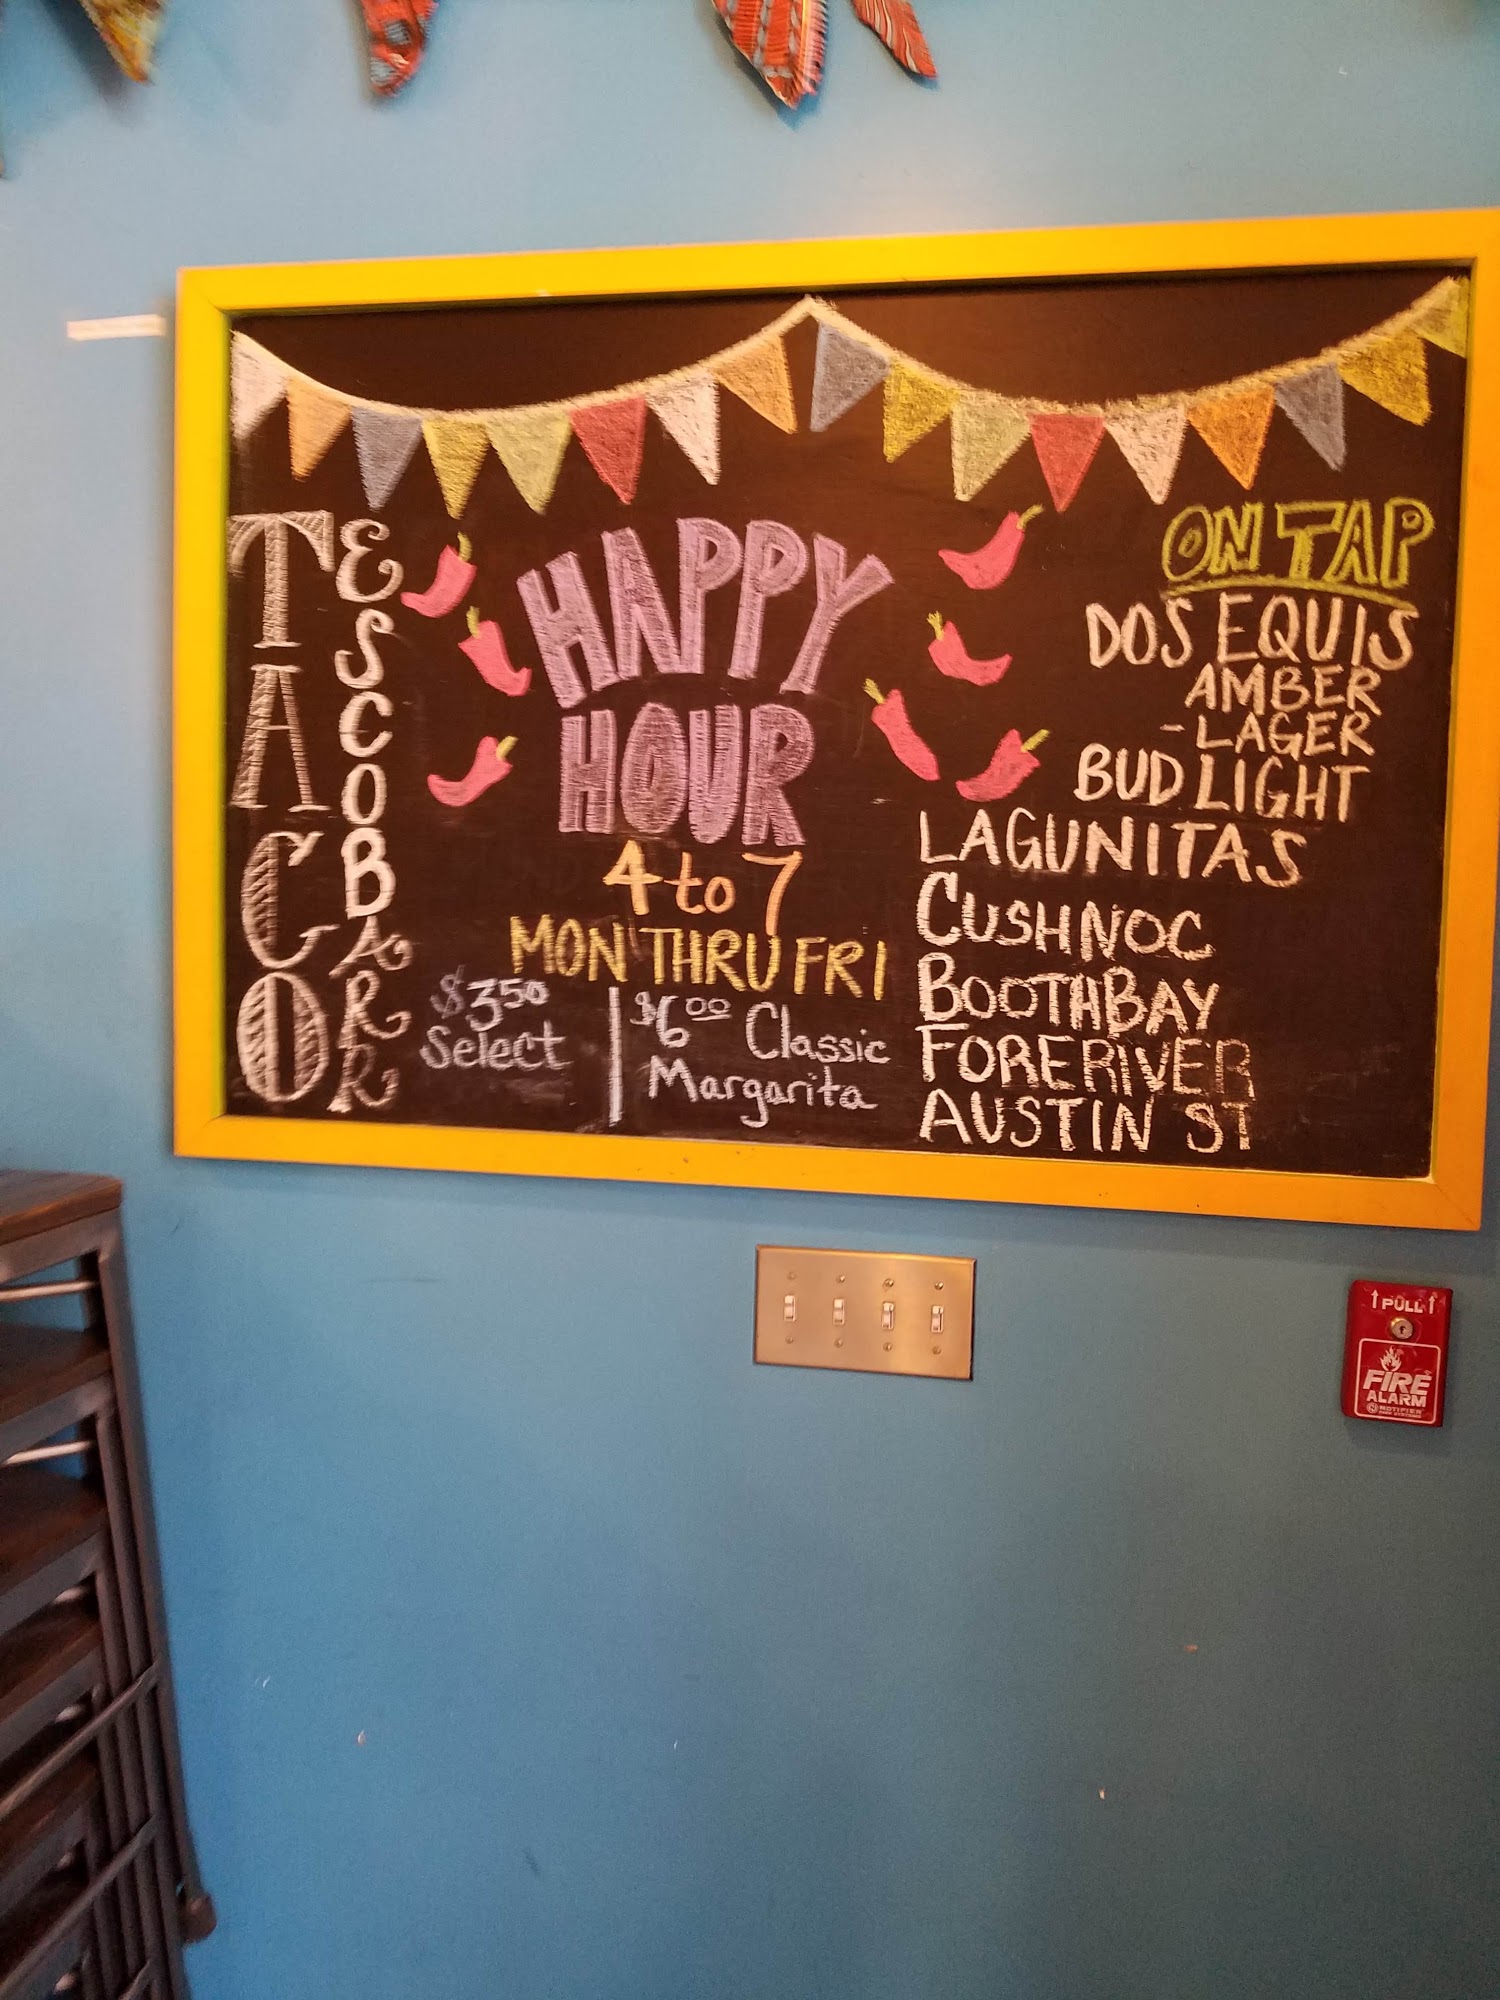 TACO
ESCOBARR
HAPPY
HOUR
4 to 7
MON THRU FRI
$3.50
Select
$6.00 Classic
Margarita
ON TAP
DOS EQUIS
AMBER
-LAGER
BUD LIGHT
LAGUNITAS
CUSHNOC
BOOTHBAY
FORERIVER
AUSTIN ST
↑ PULL ↑
FIRE
ALARM
NOTIFIER
FIRE SYSTEMS